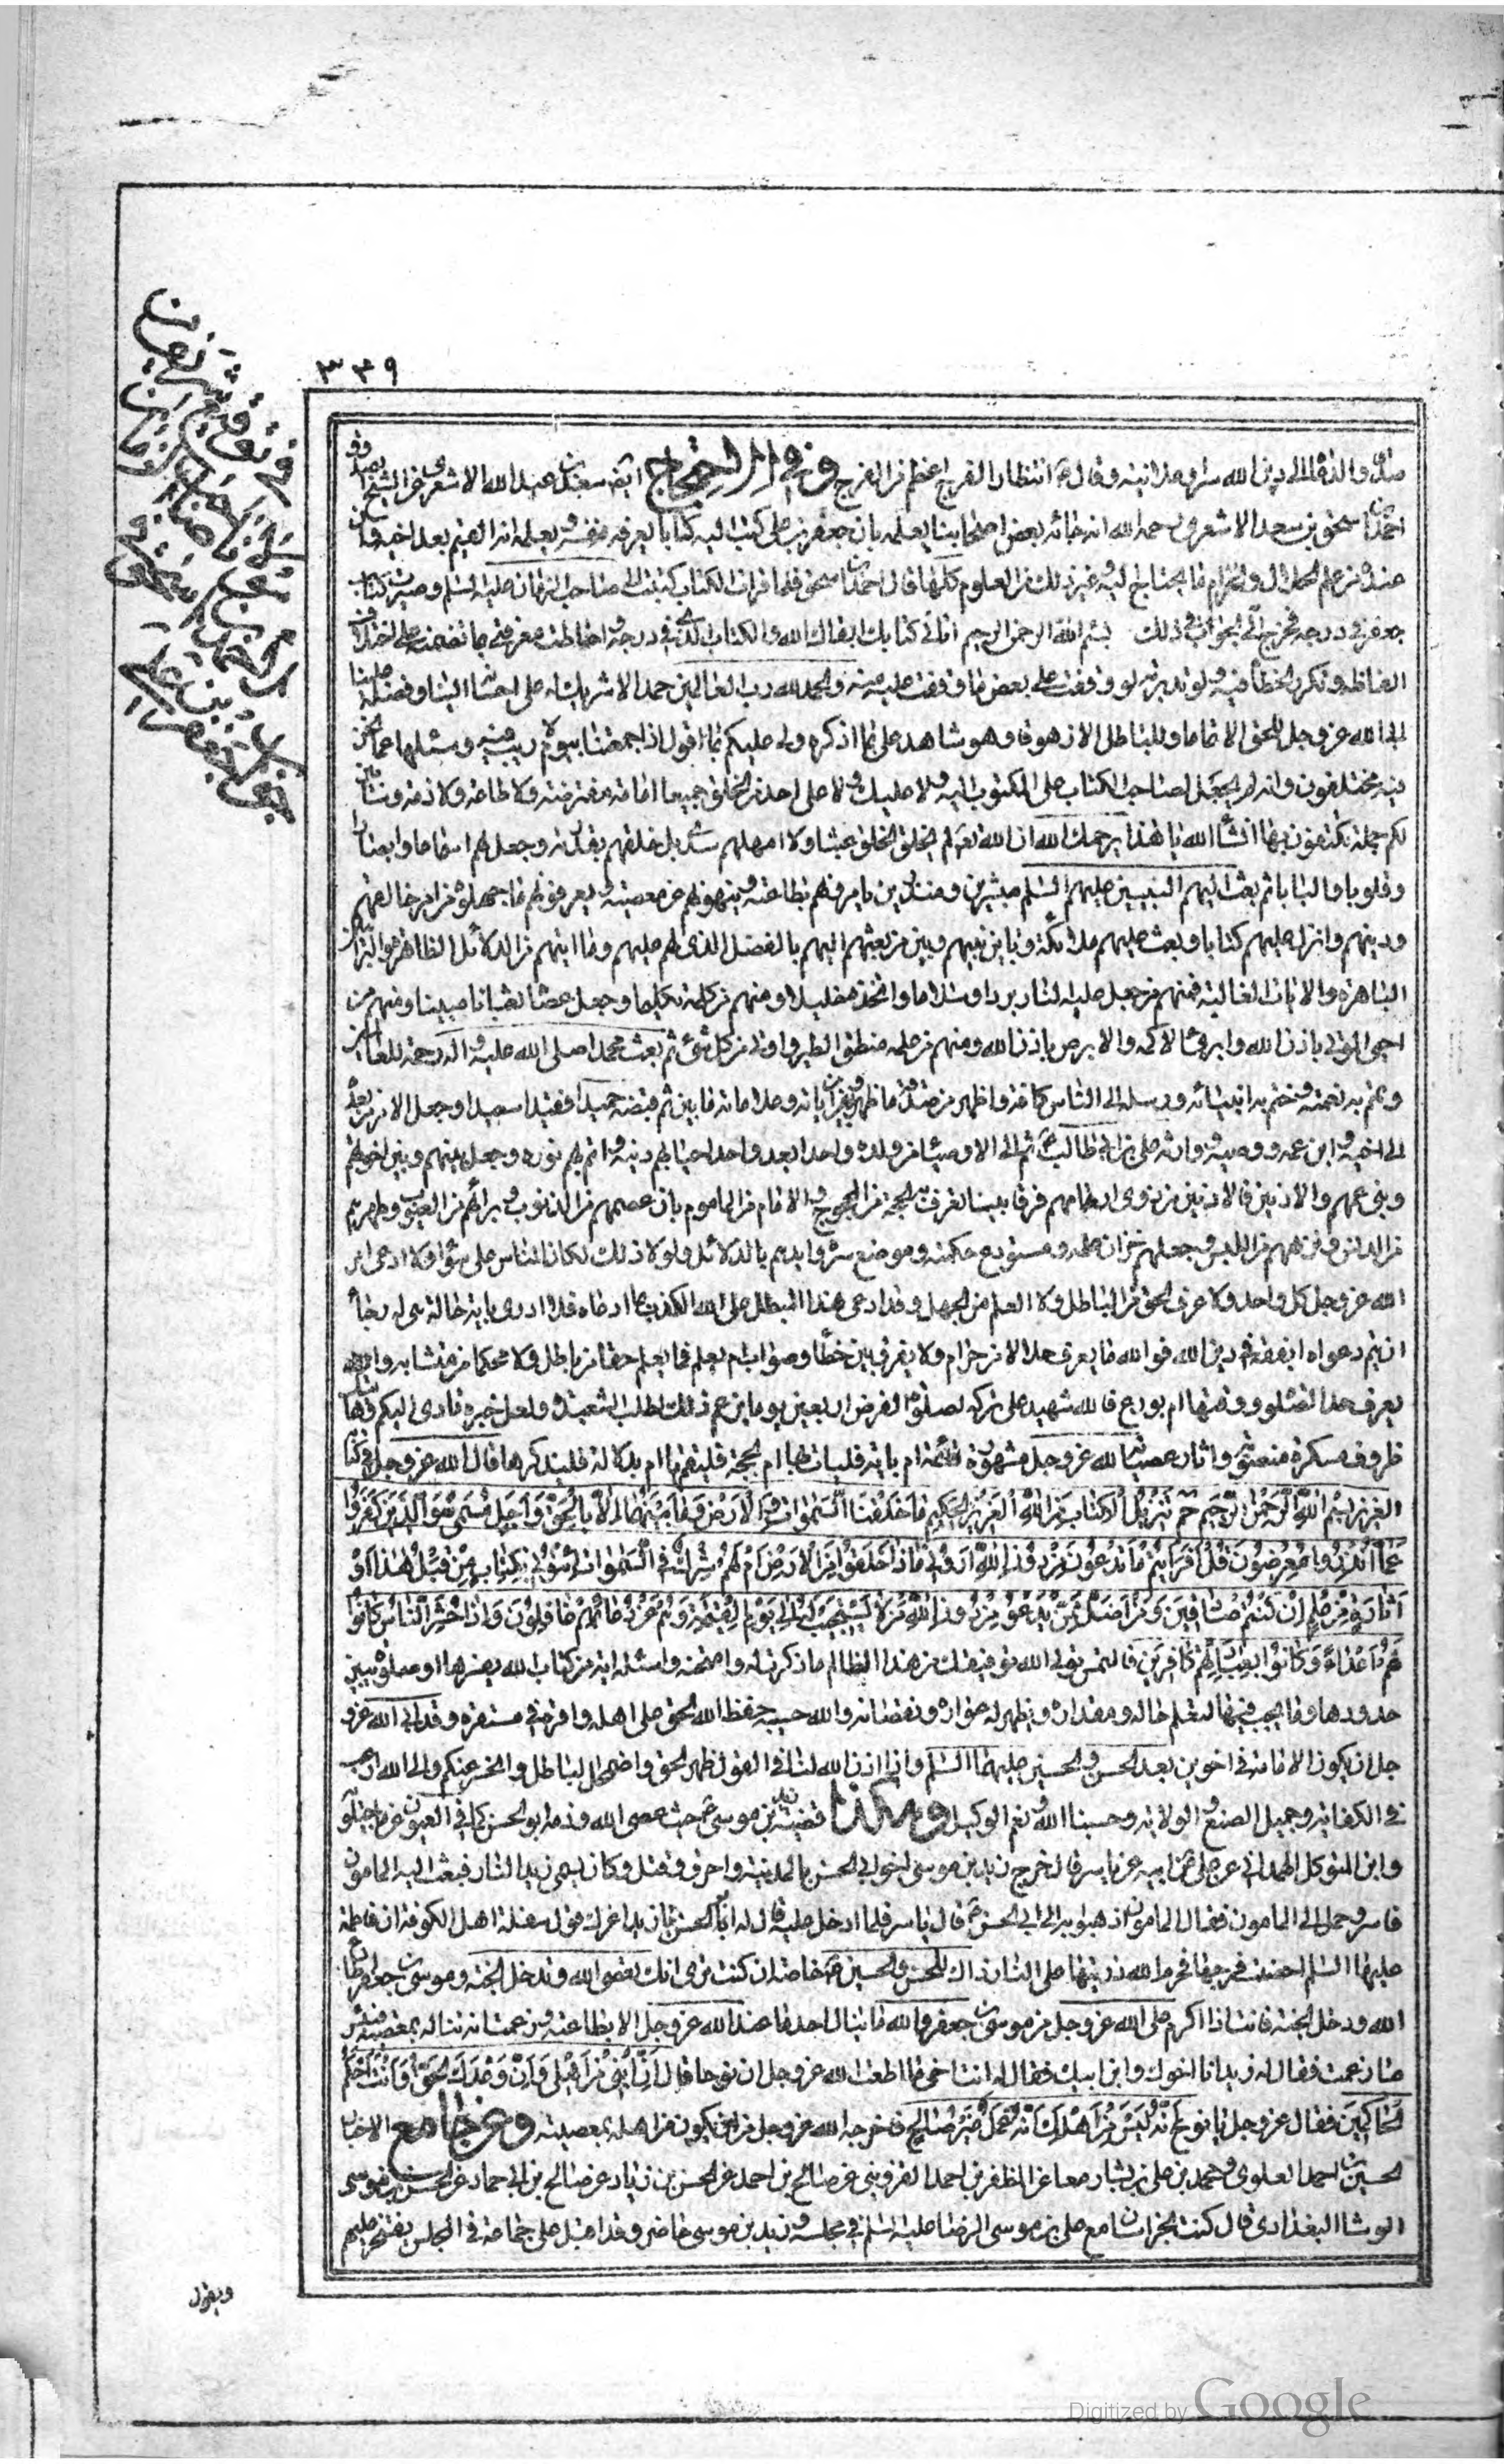 ٣٣٩
صدقا والدعاة الى دين الله سرا وعلانية وقال ع انتظار الفرج اعظم من الفرج وفي الاحتجاج ايضا سعد بن عبد الله الاشعري عن الشيخ الصدوق
احمد بن اسحق بن سعد الاشعري رحمه الله انه جائه بعض اصحابنا يعلمه بان جعفر بن علي كتب اليه كتابا يعرفه نفسه ويعلمه انه القيم بعد اخيه وان
عنده من علم الحلال والحرام ما يحتاج اليه وغير ذلك من العلوم كلها قال احمد بن اسحق فلما قرات الكتاب كتبت الى صاحب الزمان عليه السلم وصيرت كتاب
جعفر في درجه فخرج الي الجواب في ذلك بسم الله الرحمن الرحيم اتاني كتابك ابقاك الله والكتاب الذي في درجه واحاطت معرفتي بما تضمنه على اختلاف
الفاظه وتكرر الخطأ فيه ولو تدبرته لوقفت على بعض ما وقفت عليه منه والحمد لله رب العالمين حمدا لا شريك له على احسانه الينا وفضله علينا
ابى الله عز وجل للحق الا تماما وللباطل الا زهوقا وهو شاهد علي بما اذكره ولي عليكم بما اقول اذا جمعنا بيوم لا ريب فيه ويسئلنا عما نحن
فيه مختلفون وانه لم يجعل لصاحب الكتاب على المكتوب اليه ولا عليك ولا على احد من الخلق جميعا امامة مفترضة ولا طاعة ولا ذمة وسابين
لكم جملة تكتفون بها انشاء الله يا هذا يرحمك الله ان الله تعالى لم يخلق الخلق عبثا ولا امهلهم سدى بل خلقهم بقدرته وجعل لهم اسماعا وابصارا
وقلوبا والبابا ثم بعث اليهم النبيين عليهم السلم مبشرين ومنذرين يامرونهم بطاعته وينهونهم عن معصيته ويعرفونهم ما جهلوه من امر خالقهم
ودينهم وانزل عليهم كتابا وبعث عليهم ملائكة وباين بينهم وبين من بعثهم اليهم بالفضل الذي لهم عليهم وما اتيهم من الدلائل الظاهرة والبراهين
الباهرة والايات الغالبة فمنهم من جعل عليه النار بردا وسلاما واتخذه خليلا ومنهم من كلمه تكليما وجعل عصاه ثعبانا مبينا ومنهم من
احيى الموتى باذن الله وابرء الاكمه والابرص باذن الله ومنهم من علمه منطق الطير واوتي من كل شيء ثم بعث محمدا صلى الله عليه واله رحمة للعالمين
وتمم به نعمته وختم به انبيائه ورسله الى الناس كافة واظهر من صدقه ما ظهر وبين من اياته وعلاماته ما بين ثم قبضه حميدا فقيدا سعيدا وجعل الامر من بعده
الى اخيه وابن عمه ووصيه ووارثه علي بن ابي طالب ع ثم الى الاوصياء من ولده واحدا بعد واحد احيا بهم دينه واتم بهم نوره وجعل بينهم وبين اخوتهم
وبني عمهم والادنين فالادنين من ذوي ارحامهم فرقا بينا تعرف به الحجة من المحجوج والامام من الماموم بان عصمهم من الذنوب وبرأهم من العيوب وطهرهم
من الدنس ونزههم من اللبس وجعلهم خزان علمه ومستودع حكمته وموضع سره وايدهم بالدلائل ولولا ذلك لكان الناس على سواء ولا ادعى امر
الله عز وجل كل واحد ولا عرف الحق من الباطل ولا العلم من الجهل وقد ادعى هذا المبطل على الله الكذب بما ادعاه فلا ادري باية حالة هي له رجاء
ان يتم دعواه ابفقه في دين الله فوالله ما يعرف حلالا من حرام ولا يفرق بين خطأ وصواب ام بعلم فما يعلم حقا من باطل ولا محكما من متشابه ولا
يعرف حد الصلوة ووقتها ام بورع فالله شهيد على تركه لصلوة الفرض اربعين يوما يزعم ذلك لطلب الشعبذة ولعل خبره تادى اليكم وهاتيك
ظروف مسكره منصوبة واثار عصيانه لله عز وجل مشهورة قائمة ام باية فليات بها ام بحجة فليقمها ام بدلالة فليذكرها قال الله عز وجل في كتابه
العزيز بسم الله الرحمن الرحيم حم تنزيل الكتاب من الله العزيز الحكيم ما خلقنا السموات والارض وما بينهما الا بالحق واجل مسمى والذين كفروا
عما انذروا معرضون قل ارايتم ما تدعون من دون الله اروني ماذا خلقوا من الارض ام لهم شرك في السموات ائتوني بكتاب من قبل هذا او
اثارة من علم ان كنتم صادقين ومن اضل ممن يدعو من دون الله من لا يستجيب له الى يوم القيمة وهم عن دعائهم غافلون واذا حشر الناس كانوا
لهم اعداء وكانوا بعبادتهم كافرين فالتمس تولى الله توفيقك من هذا الظالم ما ذكرت له وامتحنه واسئله اية من كتاب الله يفسرها او صلوة يبين
حدودها وما يجب فيها لتعلم حاله ومقداره ويظهر له عواره ونقصانه والله حسيبه حفظ الله الحق على اهله واقره في مستقره وقد ابى الله عز و
جل ان يكون الامامة في اخوين بعد الحسن والحسين عليهما السلم واذا اذن الله لنا في القول ظهر الحق واضمحل الباطل وانحسر عنكم والى الله ارغب
في الكفاية وجميل الصنع والولاية وحسبنا الله ونعم الوكيل وهكذا قضية زيد بن موسى ع حيث عصى الله وذمه ابو الحسن كما في العيون عن ماجيلويه
وابن المتوكل والهمداني عن علي عن ابيه عن ياسر قال خرج زيد بن موسى اخو ابي الحسن بالمدينة واحرق وقتل وكان يسمى زيد النار فبعث اليه المامون
فاسر وحمل الى المامون فقال المامون اذهبوا به الى ابي الحسن ع قال ياسر فلما ادخل عليه قال له ابو الحسن يا زيد اغرك قول سفلة اهل الكوفة ان فاطمة
عليها السلم احصنت فرجها فحرم الله ذريتها على النار ذاك للحسن والحسين ع خاصة ان كنت ترى انك تعصي الله وتدخل الجنة وموسى بن جعفر اطاع
الله ودخل الجنة فانت اذا اكرم على الله عز وجل من موسى بن جعفر والله ما ينال احد ما عند الله عز وجل الا بطاعته وزعمت انك تناله بمعصيته فبئس
ما زعمت فقال له زيد انا اخوك وابن ابيك فقال له انت اخي ما اطعت الله عز وجل ان نوحا قال ان ابني من اهلي وان وعدك الحق وانت احكم
الحاكمين فقال عز وجل يا نوح انه ليس من اهلك انه عمل غير صالح فاخرجه الله عز وجل من ان يكون من اهله بمعصيته وعن جامع الاخبار
الحسين بن احمد العلوي ومحمد بن علي بن بشار معا عن المظفر بن احمد القزويني عن صالح بن احمد عن الحسن بن زياد عن صالح بن ابي حماد عن الحسن بن موسى
الوشاء البغدادي قال كنت بخراسان مع علي بن موسى الرضا عليه السلم في مجلسه وزيد بن موسى حاضر وقد اقبل على جماعة في المجلس يفتخر عليهم
ويقول
Digitized by Google